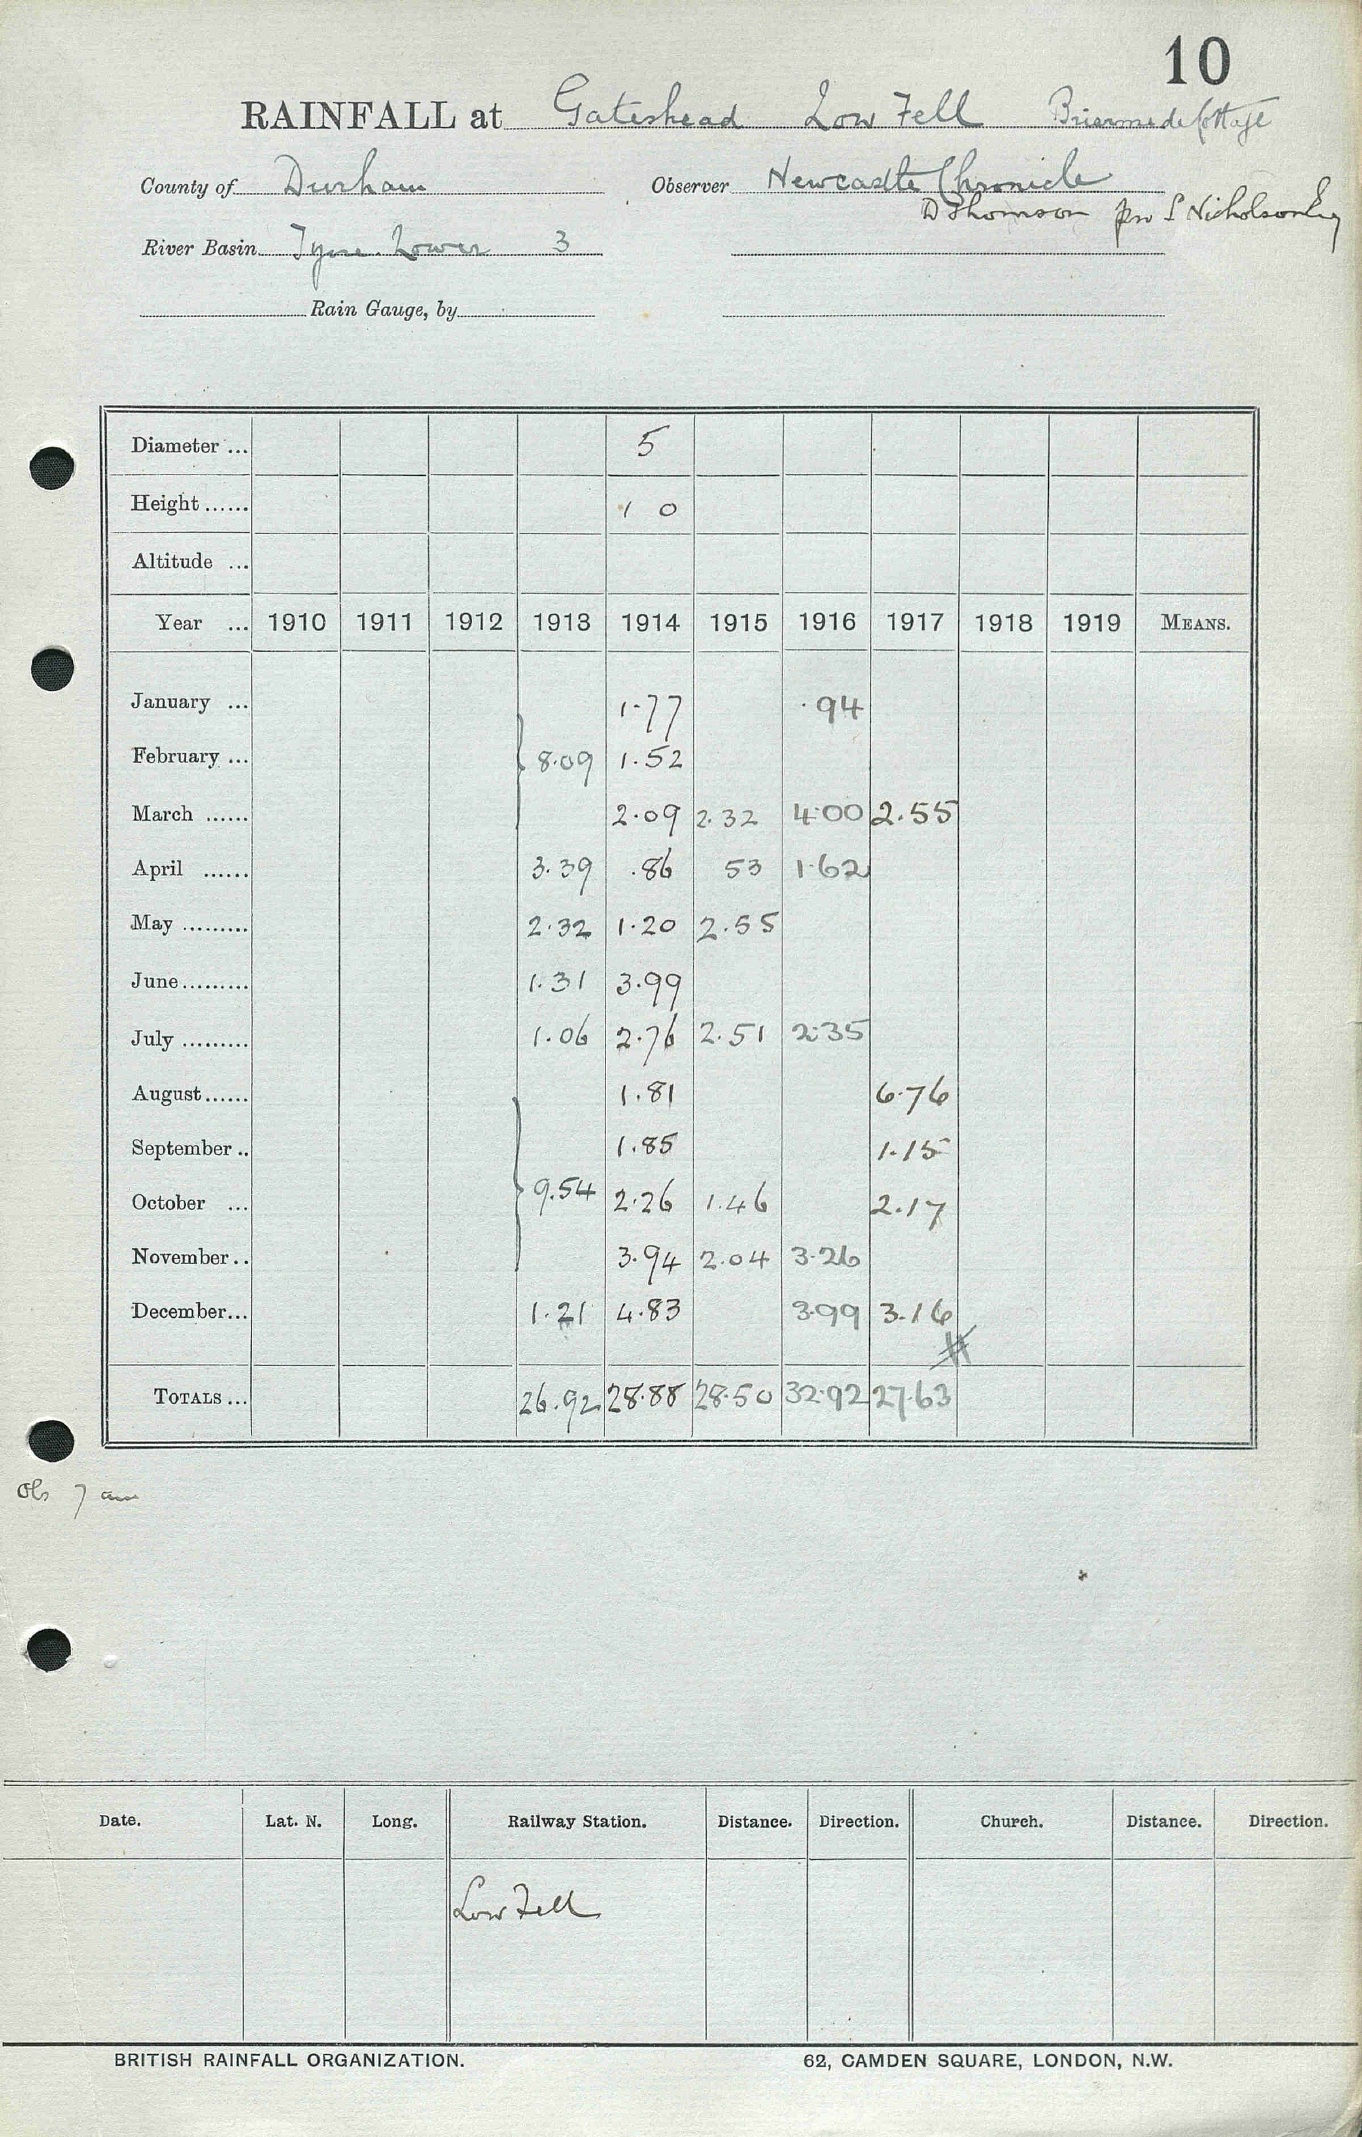 10
RAINFALL at Gateshead Low Fell Briermede Cottage
County of Durham Observer Newcastle Chronicle
D Thomson per S Nicholson Esq
River Basin Tyne. Lower 3
Rain Gauge, by
Diameter ... 5
Height ...... 1 0
Altitude ...
Year ... 1910 1911 1912 1913 1914 1915 1916 1917 1918 1919 MEANS.
January ... 1.77 .94
February ... 8.09 1.52
March ...... 2.09 2.32 4.00 2.55
April ...... 3.39 .86 53 1.62
May ......... 2.32 1.20 2.55
June ......... 1.31 3.99
July ......... 1.06 2.76 2.51 2.35
August ...... 1.81 6.76
September .. 1.85 1.15
October ... 9.54 2.26 1.46 2.17
November .. 3.94 2.04 3.26
December ... 1.21 4.83 3.99 3.16
TOTALS ... 26.92 28.88 28.50 32.92 27.63
Obs 7 am
Date. Lat. N. Long. Railway Station. Distance. Direction. Church. Distance. Direction.
Low Fell
BRITISH RAINFALL ORGANIZATION. 62, CAMDEN SQUARE, LONDON, N.W.